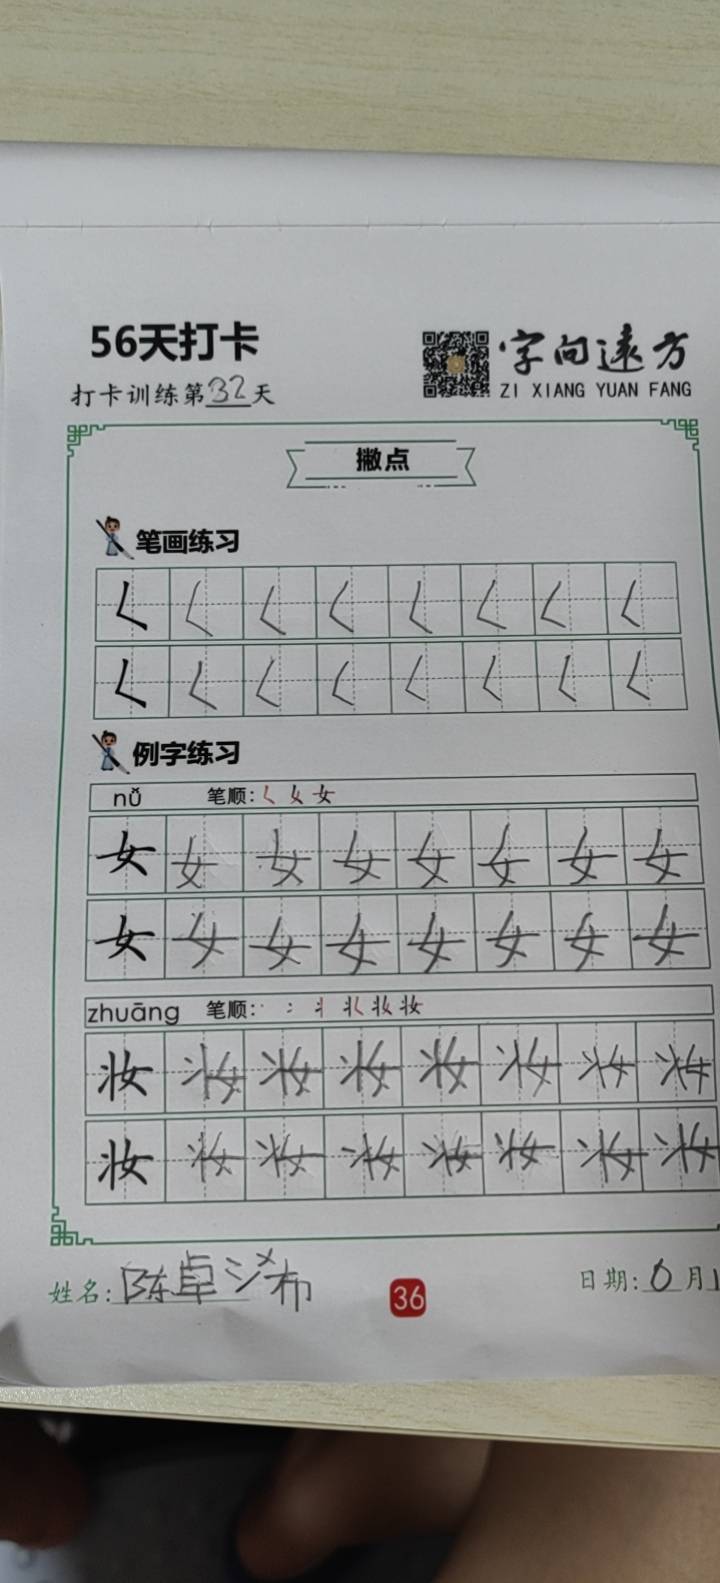 56天打卡
字向遠方
ZI XIANG YUAN FANG
打卡训练第32天
撇点
笔画练习
𡿨 𡿨 𡿨 𡿨 𡿨 𡿨 𡿨 𡿨
𡿨 𡿨 𡿨 𡿨 𡿨 𡿨 𡿨 𡿨
例字练习
nǚ 笔顺: 女
女 女 女 女 女 女 女 女
女 女 女 女 女 女 女 女
zhuāng 笔顺: 妆
妆 妆 妆 妆 妆 妆 妆 妆
妆 妆 妆 妆 妆 妆 妆 妆
姓名: 陈卓
36
日期: 月